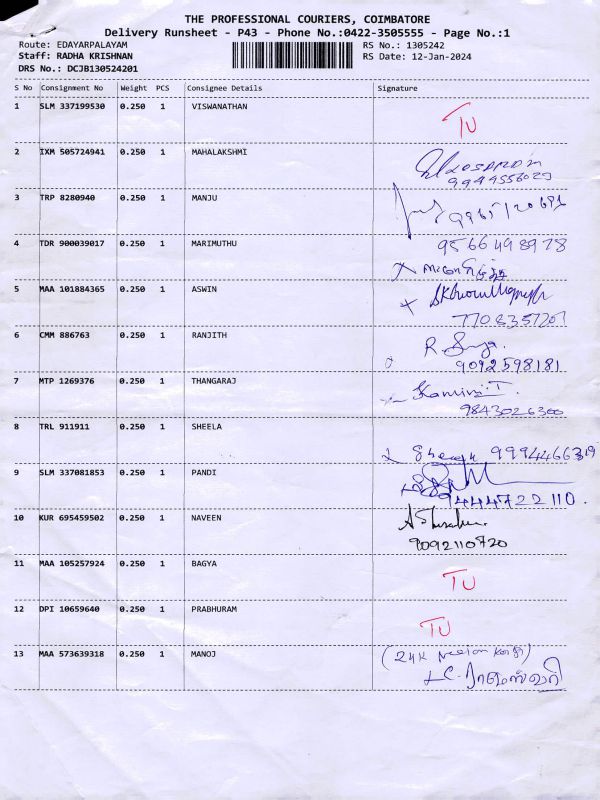 THE PROFESSIONAL COURIERS, COIMBATORE
Delivery Runsheet - P43 - Phone No.:0422-3505555 - Page No.:1
Route: EDAYARPALAYAM RS No.: 1305242
Staff: RADHA KRISHNAN RS Date: 12-Jan-2024
DRS No.: DCJB130524201
S No Consignment No Weight PCS Consignee Details Signature
1 SLM 337199530 0.250 1 VISWANATHAN
TU
2 IXM 505724941 0.250 1 MAHALAKSHMI
3 TRP 8280940 0.250 1 MANJU
4 TDR 900039017 0.250 1 MARIMUTHU 9566498978
5 MAA 101884365 0.250 1 ASWIN
6 CMM 886763 0.250 1 RANJITH R
9092598181
7 MTP 1269376 0.250 1 THANGARAJ
9843026300
8 TRL 911911 0.250 1 SHEELA
9994466319
9 SLM 337081853 0.250 1 PANDI
9444722110.
10 KUR 695459502 0.250 1 NAVEEN
9092110720
11 MAA 105257924 0.250 1 BAGYA
TU
12 DPI 10659640 0.250 1 PRABHURAM
TU
13 MAA 573639318 0.250 1 MANOJ